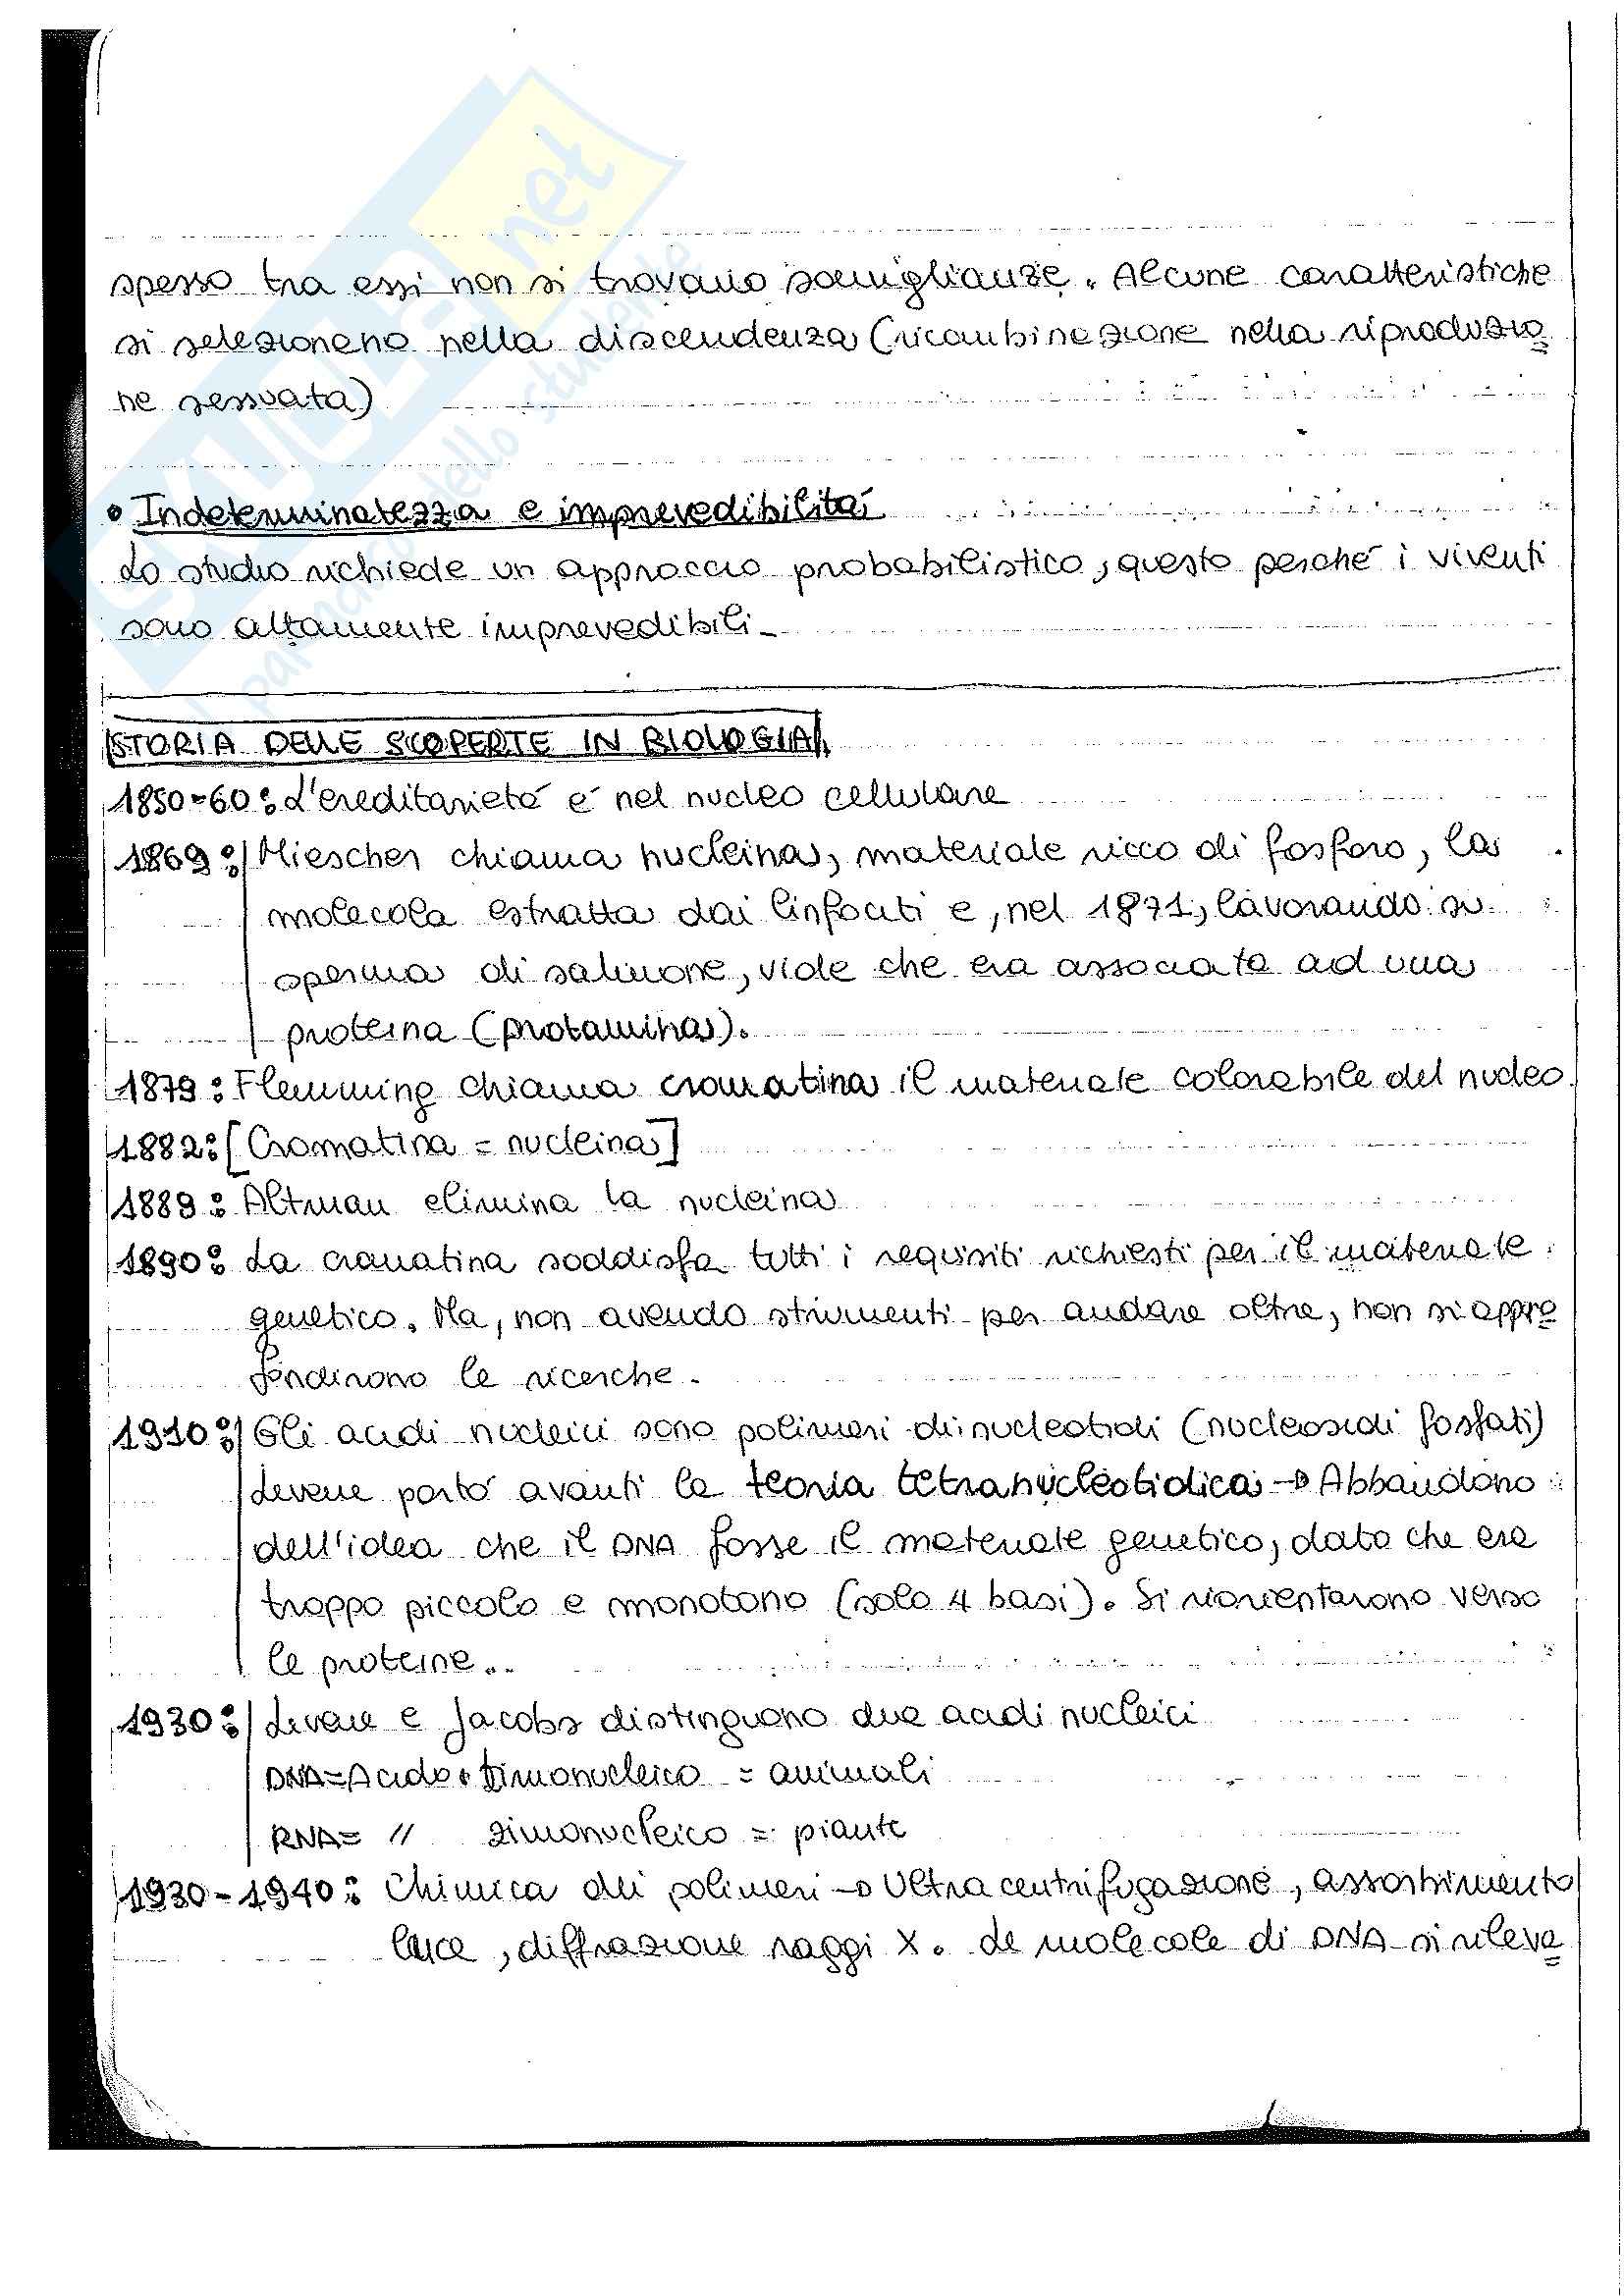 spesso tra essi non si trovano somiglianze. Alcune caratteristiche
si selezionano nella discendenza (ricombinazione nella riproduzio
ne sessuata)
• Indeterminatezza e imprevedibilità
Lo studio richiede un approccio probabilistico, questo perché i viventi
sono altamente imprevedibili_
STORIA DELLE SCOPERTE IN BIOLOGIA
1850-60: L'ereditarietà è nel nucleo cellulare
1869: Miescher chiama nucleina, materiale ricco di fosforo, la
molecola estratta dai linfociti e, nel 1871, lavorando su
sperma di salmone, vide che era associata ad una
proteina (protamina).
1879: Flemming chiama cromatina il materiale colorabile del nucleo
1882: [Cromatina = nucleina]
1889: Altman elimina la nucleina
1890: La cromatina soddisfa tutti i requisiti richiesti per il materiale
genetico. Ma, non avendo strumenti per andare oltre, non si appro
fondirono le ricerche.
1910: Gli acidi nucleici sono polimeri di nucleotidi (nucleosidi fosfati)
Levene portò avanti la teoria tetranucleotidica → Abbandono
dell'idea che il DNA fosse il materiale genetico, dato che era
troppo piccolo e monotono (solo 4 basi). Si riorientarono verso
le proteine..
1930: Levene e Jacobs distinguono due acidi nucleici
DNA = Acido timonucleico = animali
RNA = // zimonucleico = piante
1930-1940: Chimica dei polimeri → Ultracentrifugazione, assorbimento
luce, diffrazione raggi X. Le molecole di DNA si rileva